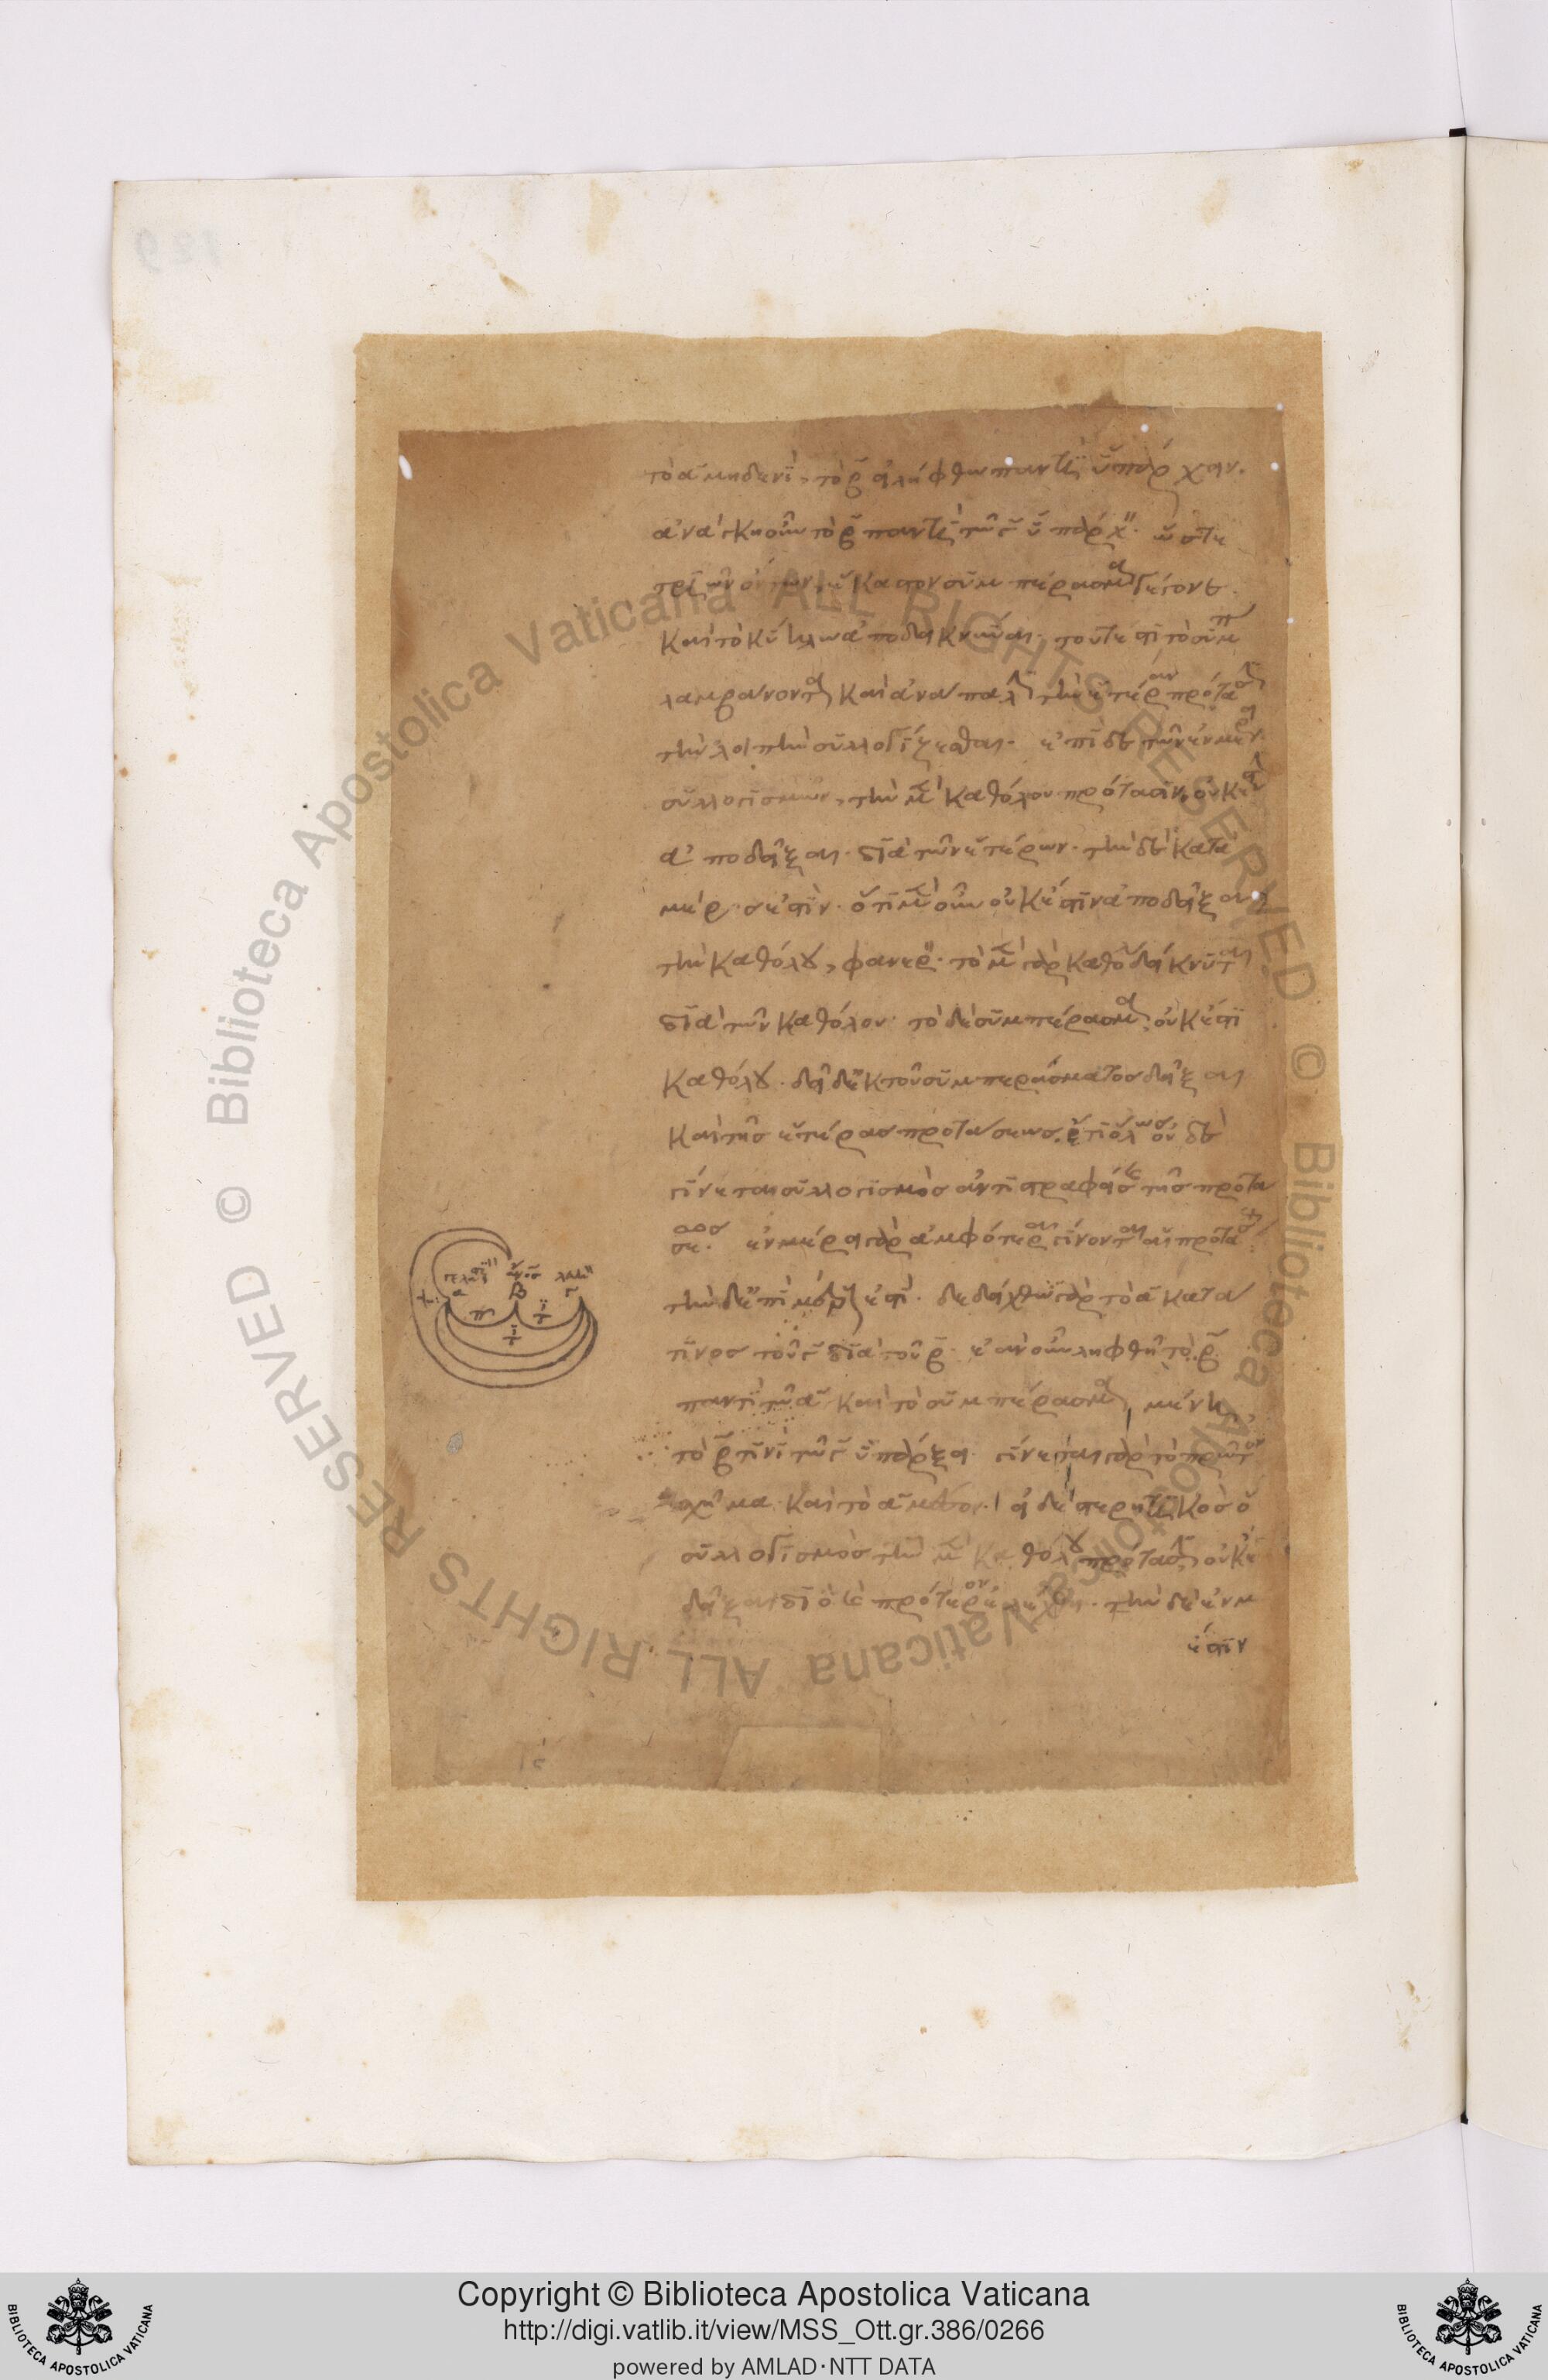 τὸ α̅ μηδενὶ, τὸ β̅ εἰλήφθω παντὶ ὑπάρχειν.
ἀνάγκη οὖν τὸ β̅ παντὶ τῶ γ̅ ὑπάρχειν. ὥστε
τριῶν ὄντων, ἕκαστον συμπέρασμα γέγονε.
καὶ τὸ κύκλω ἀποδεικνύναι. τοῦτ' ἐστὶ τὸ συμπ
λαμβάνοντα καὶ ἀνάπαλιν τὴν ἑτέραν πρότασιν
τὴν λοιπὴν συλλογίζεσθαι. ἐπὶ δὲ τῶν ἐν μέρει
συλλογισμῶν, τὴν μὲν καθόλου πρότασιν, οὐκ ἔστιν
ἀποδεῖξαι διὰ τῶν ἑτέρων. τὴν δὲ κατὰ
μέρος ἐστίν. ὅτι μὲν οὖν οὐκ ἔστιν ἀποδεῖξαι
τὴν καθόλου, φανερόν. τὸ μὲν γὰρ καθόλου δείκνυται
διὰ τῶν καθόλου. τὸ δὲ συμπέρασμα, οὐκ ἔστι
καθόλου. δεῖ δ' ἐκ τοῦ συμπεράσματος δεῖξαι
καὶ τῆς ἑτέρας προτάσεως. ἔτι ὅλως οὐδὲ
γίνεται συλλογισμὸς ἀντιστραφείσης τῆς προτά
σεως. ἐν μέρει γὰρ ἀμφότεραι γίνονται αἱ προτάσεις
τὴν δ' ἐπὶ μέρους ἔστι. δεδείχθω γὰρ τὸ α̅ κατά
τινος τοῦ γ̅ διὰ τοῦ β̅. ἐὰν οὖν ληφθῆ τὸ β̅
παντὶ τῶ α̅ καὶ τὸ συμπέρασμα μένη,
τὸ β̅ τινὶ τῶ γ̅ ὑπάρξει. γίνεται γὰρ τὸ πρῶτον
σχῆμα καὶ τὸ α̅ μέσον. εἰ δὲ στερητικὸς ὁ
συλλογισμὸς τὴν μὲν καθόλου πρότασιν, οὐκ ἔ
δεῖξαι διὸ καὶ πρότερον ἐλέχθη. τὴν δὲ ἐν μ
ἔστιν
α β γ
Copyright © Biblioteca Apostolica Vaticana
http://digi.vatlib.it/view/MSS_Ott.gr.386/0266
powered by AMLAD·NTT DATA
BIBLIOTECA APOSTOLICA VATICANA
BIBLIOTECA APOSTOLICA VATICANA
© Biblioteca Apostolica Vaticana ALL RIGHTS RESERVED
© Biblioteca Apostolica Vaticana ALL RIGHTS RESERVED